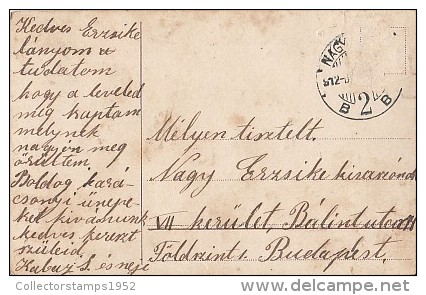 Kedves Erzsike
lányom
tudatom
hogy a leveled
meg kaptam
melynek
nagyon meg
örültem
Boldog kará-
csonyi ünepe-
ket kivánunk
kedves kereszt
szüleid
Kabaz S. és neje
NAGY
912
B 2 B
Mélyen tisztelt
Nagy Erzsike kisasszonynak
VII kerület Bálint utca
Földszint 1. Budapest.
Collectorstamps1952
delcampe.net